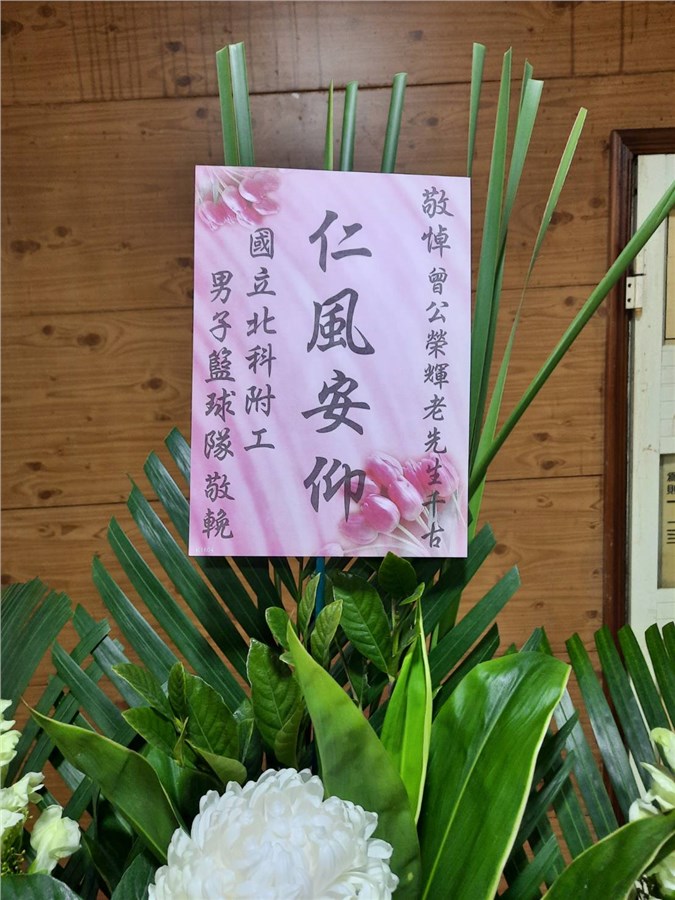 敬悼曾公榮輝老先生千古
仁風安仰
國立北科附工
男子籃球隊敬輓